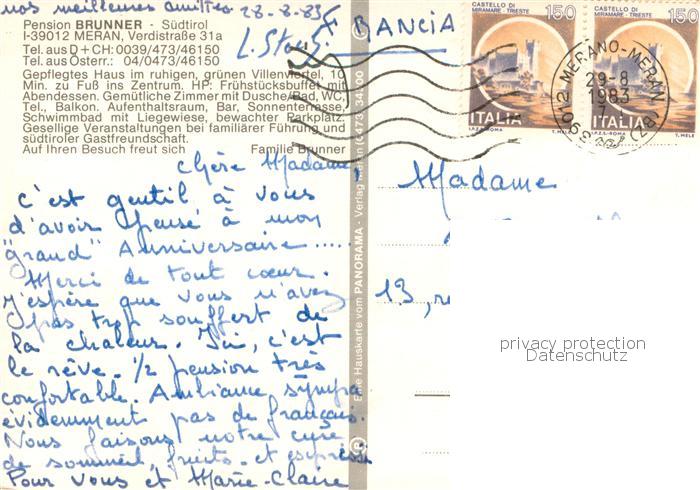 nos meilleures amitiés 28-8-83
Pension BRUNNER - Südtirol
I-39012 MERAN, Verdistraße 31a
Tel. aus D + CH: 0039/473/46150
Tel. aus Österr.: 04/0473/46150
Gepflegtes Haus im ruhigen, grünen Villenviertel, 10
Min. zu Fuß ins Zentrum. HP: Frühstücksbuffet mit
Abendessen. Gemütliche Zimmer mit Dusche/Bad, WC,
Tel., Balkon. Aufenthaltsraum, Bar, Sonnenterrasse,
Schwimmbad mit Liegewiese, bewachter Parkplatz.
Gesellige Veranstaltungen bei familiärer Führung und
südtiroler Gastfreundschaft.
Auf Ihren Besuch freut sich Familie Brunner
chère Madame,
c'est gentil à vous
d'avoir pensé à mon
"grand" Anniversaire.....
Merci de tout cœur.
J'espère que vous n'avez
pas trop souffert de
la chaleur. Ici, c'est
le rêve. 1/2 pension très
confortable. Ambiance sympa
évidemment pas de français.
Nous faisons notre cure
de sommeil, fruits et
Pour vous et Marie-Claire
Eine Hauskarte vom PANORAMA - Verlag Meran (0473) 34400
FRANCIA
CASTELLO DI
MIRAMARE - TRIESTE
150
ITALIA
I.P.Z.S. - ROMA T. MELE
CASTELLO DI
MIRAMARE - TRIESTE
150
ITALIA
I.P.Z.S. - ROMA T. MELE
39012 MERANO-MERAN (BZ)
29-8
1983
Madame
13, r
privacy protection
Datenschutz